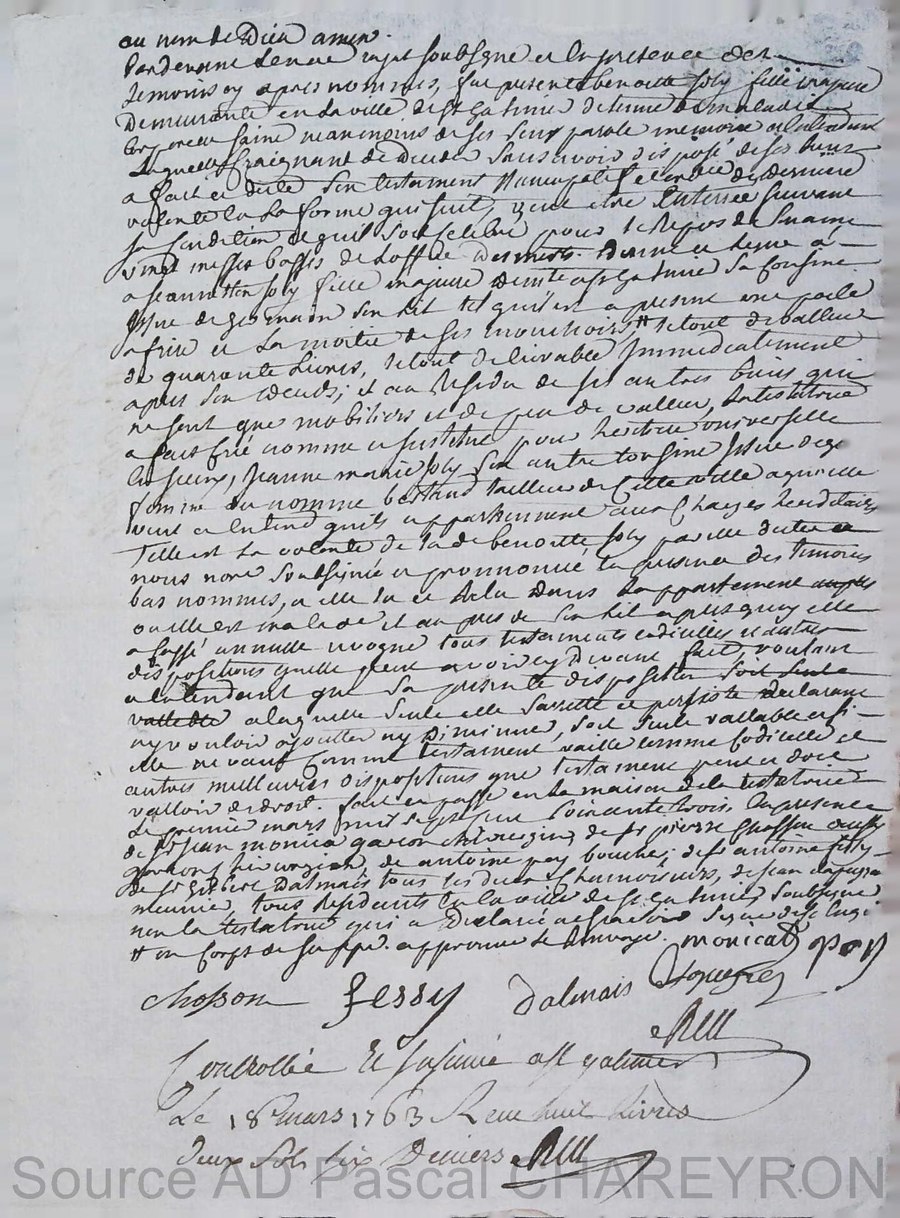 au nom de Dieu amen.
Pardevant Lenoe royal soubsigné et en presence des
temoins cy apres nommés, fut presente benoitte joly fille majeure
demeurante en la ville de st galmier detenue de maladie
corporelle saine neanmoins de ses sens parole memoire et entendement
Laquelle craignant de deceder sans avoir disposé de ses biens
a fait et dicté son testament nuncupatif et ordce de derniere
volonté en la forme qui suit, veut etre Enterrée suivant
sa condition, et quil soit celebré pour le repos de son ame
vingt messes basses de loffice des morts. donne et legue à
a jeannetton joly fille majeure dudit st galmier sa cousine
issue de germain son lit tel quil est a present une poele
a frire et la moitié de ses mouchoirs, # le tout de valleur
de quarante livres, le tout delivrable immediatement
apres son deceds; et au residu de ses autres biens qui
ne sont que mobiliers et de peu de valleur, la testatrice
a fait créé nommé et institué pour heritiere universelle
jeanne marie joly son autre cousine issue de ge
femme du nommé bertaud tailleur de cette ville a qui elle
veut et entend quils appartiennent aux charges hereditaires
Telle est la volonté de lade benoitte joly par elle dictée a
nous nore soubsigné et prononcé en presence des temoins
bas nommés, a elle lu et relu dans lappartement
ou elle est malade et au pres de son lit apres quoy elle
a cassé annullé revoqué tous testaments codicilles et autres
dispositions quelle peut avoir cy devant fait, voulant
et entendant que sa presente disposition soit seule
vallable a laquelle seule elle sarrette et persiste declarant
ny vouloir ajoutter ny diminuer, soit seule vallable et si
elle ne vaut comme testament vaille comme codicille et
autres meilleures dispositions que testament peut et doit
valloir de droit. fait et passé en la maison de la testatrice
Le premier mars mil sept cent soixante trois. En presence
de sr jean monicat garcon chirurgien, de sr pierre chosson aussy
garcon chirurgien, de antoine pay boucher, de sr antoine fessy
de sr gilbert Dalmais tous les deux chamoiseurs, de jean
meunier, tous residents en la ville de st galmier soubsigné
non la testatrice qui a declaré ne scavoir signer de ce enquise
# un corps de juppe. approuvé le renvoye. monicat pay
chosson fessy Dalmais

Controllé et insinué a st galmier
Le 18e mars 1763 Reçu huit livres
deux sols six deniers
Source AD Pascal CHAREYRON